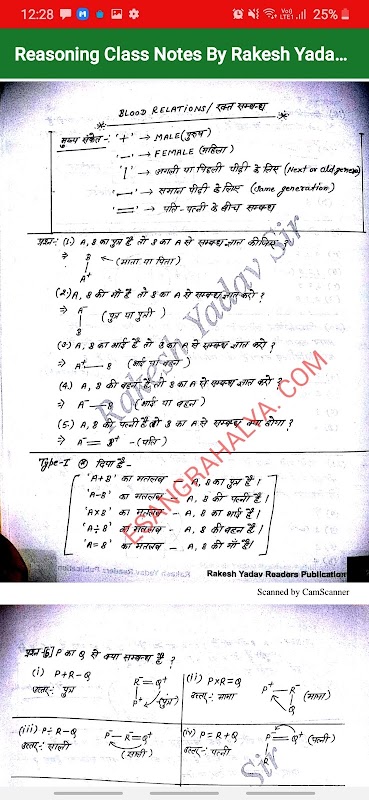 12:28
25%
Reasoning Class Notes By Rakesh Yada...
BLOOD RELATIONS/ रक्त सम्बन्ध
मुख्य संकेत - '+' → MALE (पुरुष)
'—' → FEMALE (महिला)
'|' → अगली या पिछली पीढ़ी के लिए (Next or old generation)
'—' → समान पीढ़ी के लिए (Same generation)
'=' → पति-पत्नी के बीच सम्बन्ध
प्रश्न:- (1) A, B का पुत्र है तो B का A से सम्बन्ध ज्ञात कीजिए ?
⇒ B (माता या पिता)
A+
(2) A, B की माँ है तो B का A से सम्बन्ध ज्ञात करो ?
⇒ A- (पुत्र या पुत्री)
B
(3) A, B का भाई है तो B का A से सम्बन्ध ज्ञात करो ?
⇒ A+ — B (भाई या बहन)
(4) A, B की बहन है तो B का A से सम्बन्ध ज्ञात करो ?
⇒ A- — B (भाई या बहन)
(5) A, B की पत्नी है तो B का A से सम्बन्ध क्या होगा ?
⇒ A- = B+ - (पति)
Type-I दिया है -
'A+B' का मतलब — A, B का पुत्र है।
'A-B' का मतलब — A, B की पत्नी है।
'A×B' का मतलब — A, B का भाई है।
'A÷B' का मतलब — A, B की बहन है।
'A=B' का मतलब — A, B की माँ है।
Rakesh Yadav Sir
ESANGRAHALYA.COM
Rakesh Yadav Readers Publication
Scanned by CamScanner
प्रश्न [6] P का Q से क्या सम्बन्ध है ?
(i) P+R-Q
उत्तर:- पुत्र
R- = Q+
P+ (पुत्र)
(ii) P×R=Q
उत्तर:- मामा
P+ — R- (मामा)
Q
(iii) P÷R-Q
उत्तर:- साली
P- — R- = Q+
(साली)
(iv) P=R+Q
उत्तर:- पत्नी
P- = Q+ (पत्नी)
R+
Sir